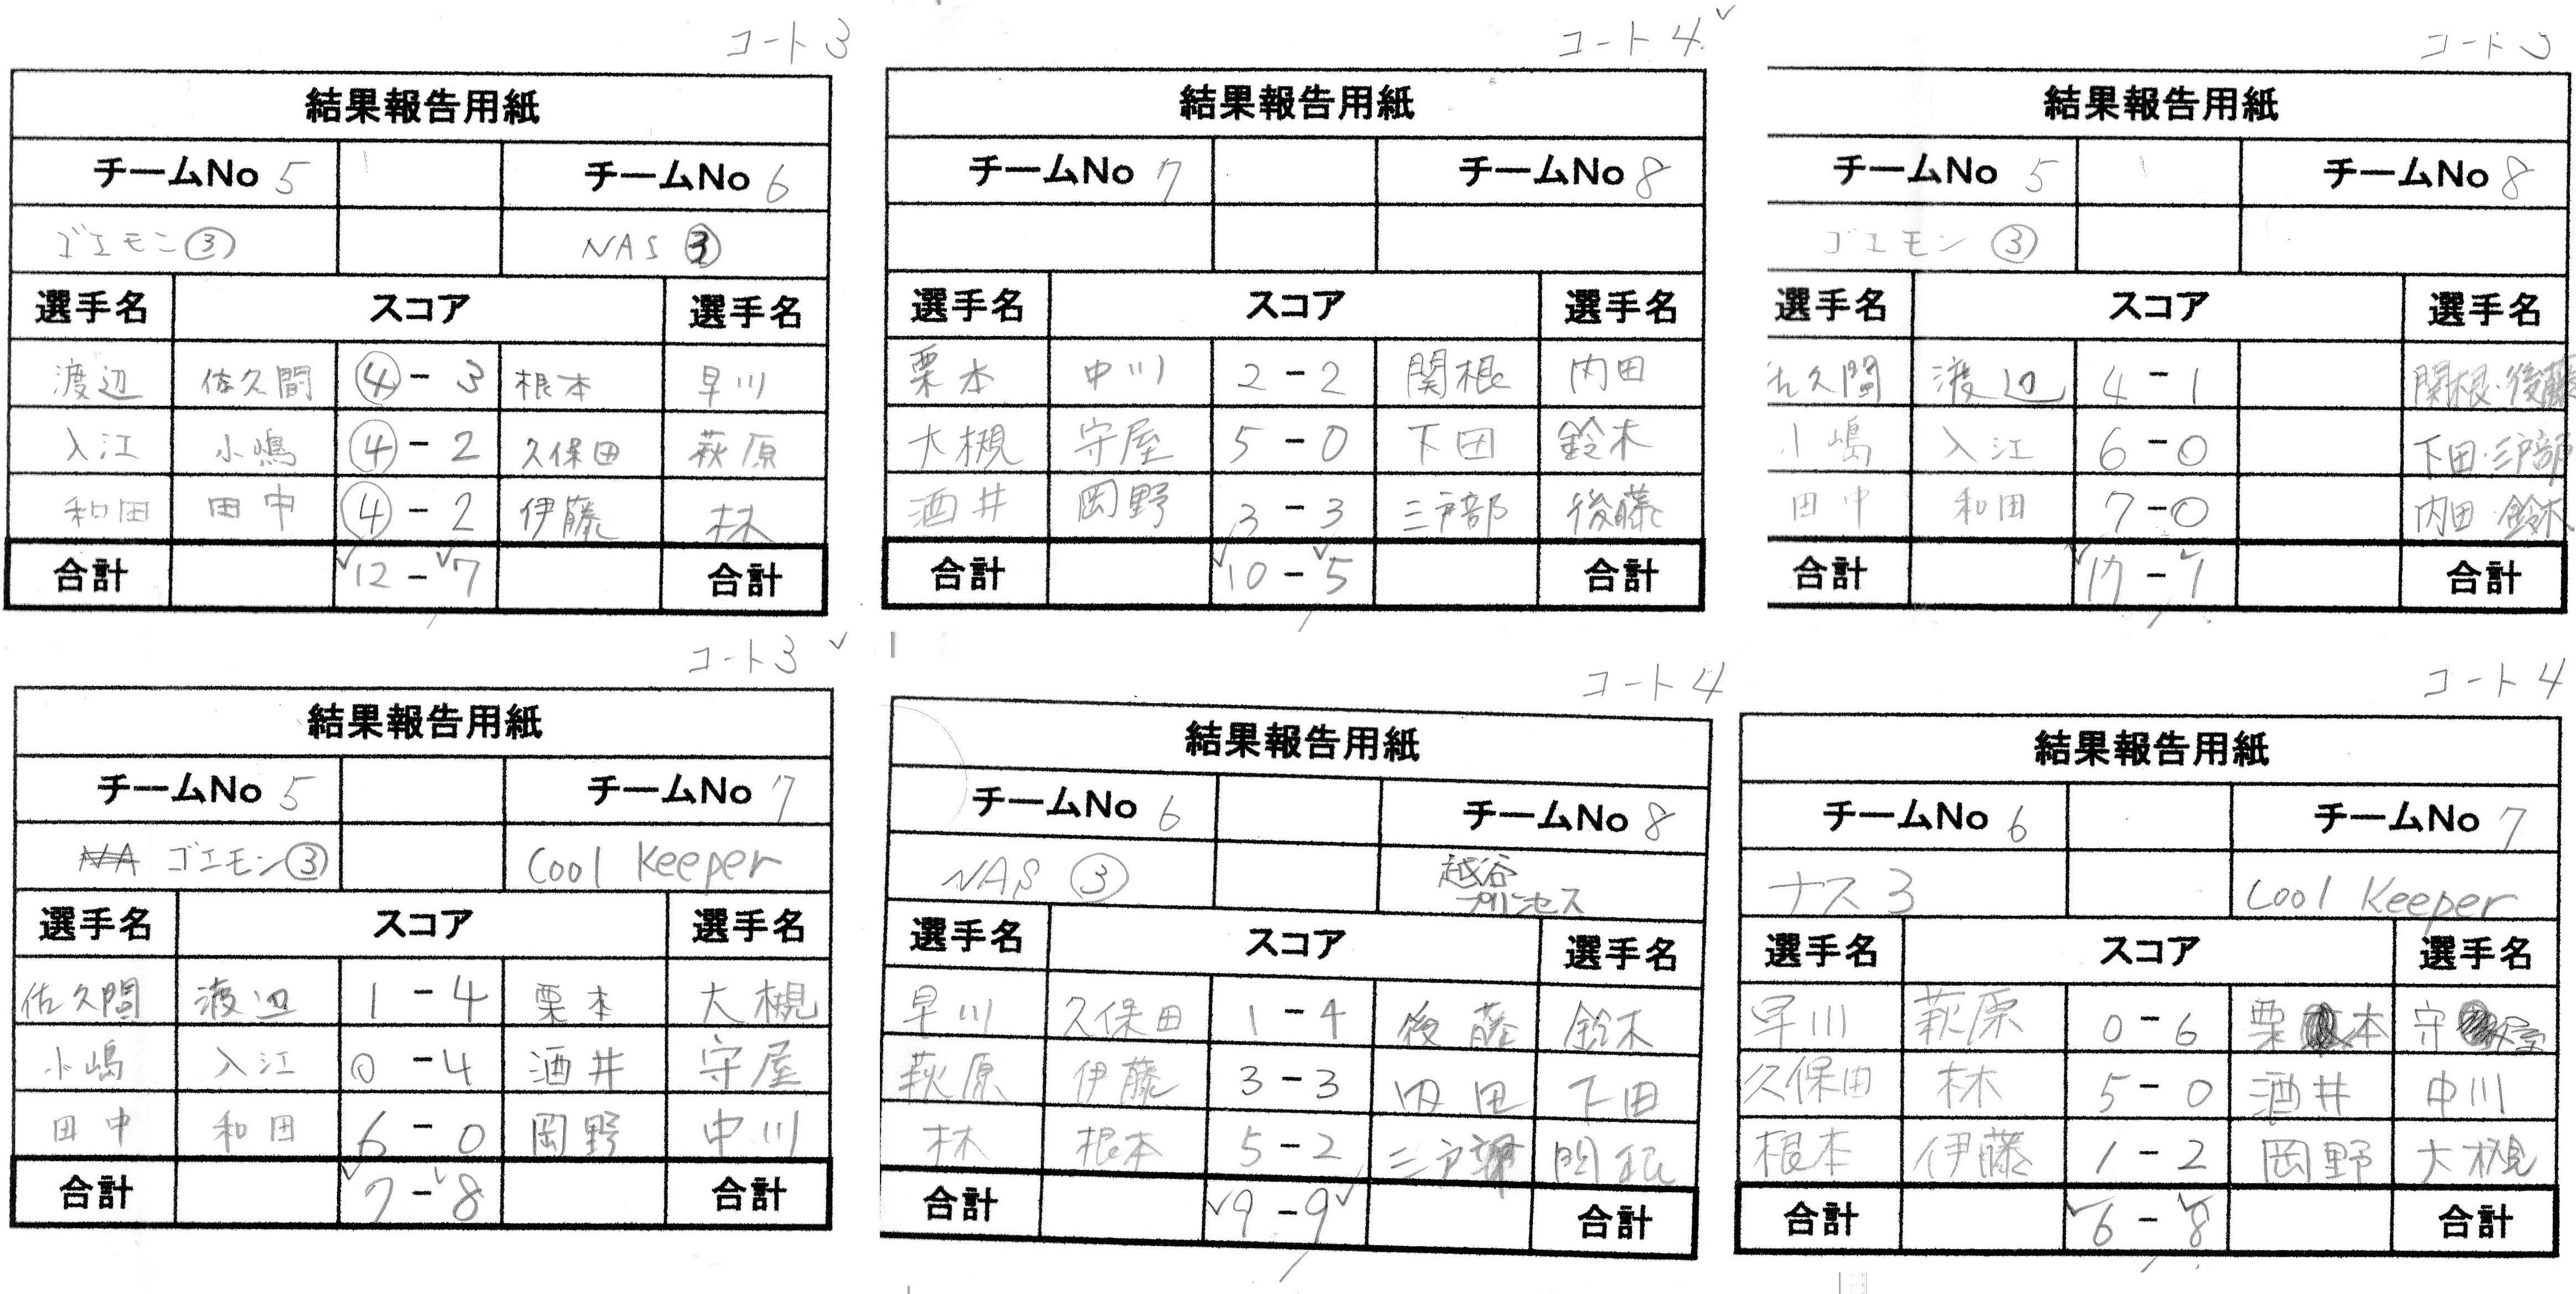 コート3
結果報告用紙
チームNo 5 チームNo 6
ゴエモン③ NAS ③
選手名 スコア 選手名
渡辺 佐久間 ④-3 根本 早川
入江 小嶋 ④-2 久保田 萩原
和田 田中 ④-2 伊藤 林
合計 12-7 合計
コート4
結果報告用紙
チームNo 7 チームNo 8
選手名 スコア 選手名
栗本 中川 2-2 関根 内田
大槻 守屋 5-0 下田 鈴木
酒井 岡野 3-3 三戸部 後藤
合計 10-5 合計
コート3
結果報告用紙
チームNo 5 チームNo 8
ゴエモン③
選手名 スコア 選手名
佐久間 渡辺 4-1 関根・後藤
小嶋 入江 6-0 下田・三戸部
田中 和田 7-0 内田・鈴木
合計 17-1 合計
コート3
結果報告用紙
チームNo 5 チームNo 7
ゴエモン③ Cool Keeper
選手名 スコア 選手名
佐久間 渡辺 1-4 栗本 大槻
小嶋 入江 0-4 酒井 守屋
田中 和田 6-0 岡野 中川
合計 7-8 合計
コート4
結果報告用紙
チームNo 6 チームNo 8
NAS ③ 越谷
プリンセス
選手名 スコア 選手名
早川 久保田 1-4 後藤 鈴木
萩原 伊藤 3-3 内田 下田
林 根本 5-2 三戸部 関根
合計 9-9 合計
コート4
結果報告用紙
チームNo 6 チームNo 7
ナス3 Cool Keeper
選手名 スコア 選手名
早川 萩原 0-6 栗本 守屋
久保田 林 5-0 酒井 中川
根本 伊藤 1-2 岡野 大槻
合計 6-8 合計